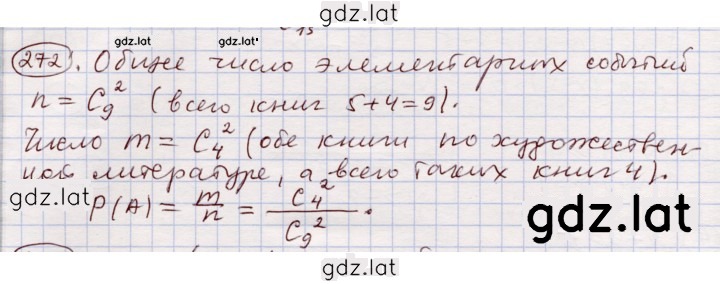 gdz.lat
15
gdz.lat gdz.lat
272. Общее число элементарных событий
n = C₉² (всего книг 5+4=9).
Число m = C₄² (обе книги по художествен-
ной литературе, а всего таких книг 4).
P(A) = m/n = C₄²/C₉².
gdz.lat
gdz.lat
gdz.lat